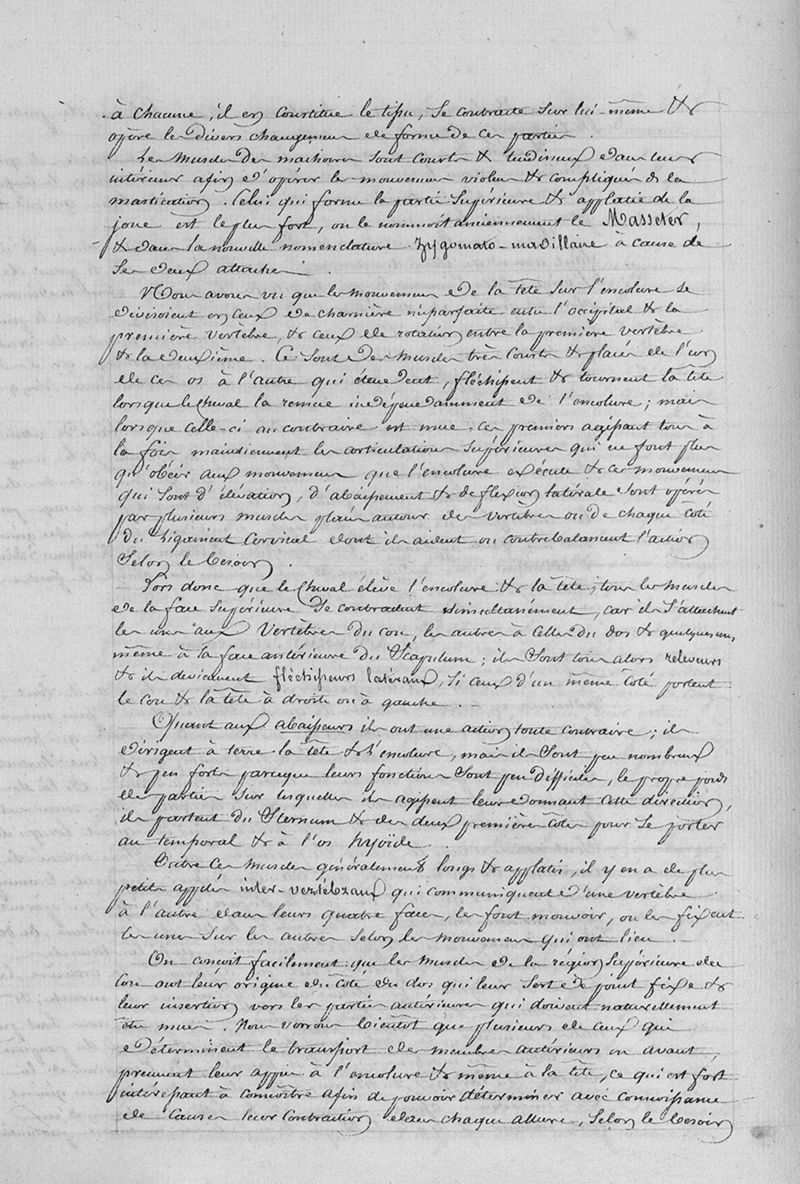 à chacune, il en constitue le tissu, se contracte sur lui-même &
opère les divers changemens de forme de ces parties.
Les muscles des machoires sont courts & tendineux dans leur
intérieur afin d'opérer les mouvemens violens & compliqués de la
mastication. Celui qui forme la partie supérieure & applatie de la
joue est le plus fort, on le nommoit anciennement le Masseter,
& dans la nouvelle nomenclature zygomato-maxillaire à cause de
ses deux attaches.
Nous avons vu que les mouvemens de la tête sur l'encolure se
divisoient en ceux de charnière imparfaite entre l'occipital & la
première vertèbre, & ceux de rotation entre la première vertèbre
& la deuxième. Ce sont des muscles très courts & placés de l'un
de ces os à l'autre qui étendent, fléchissent & tournent la tête
lorsque le Cheval la remue indépendamment de l'encolure; mais
lorsque celle-ci au contraire est mue, ces premiers agissant tous à
la fois maintiennent les articulations supérieures qui ne font plus
qu'obéir aux mouvemens que l'encolure exécute & ces mouvemens
qui sont d'élévation, d'abaissement & de flexion latérale sont opérés
par plusieurs muscles placés autour des vertèbres ou de chaque coté
du Ligament Cervical dont ils aident ou contrebalancent l'action
selon le besoin.
Lors donc que le Cheval élève l'encolure & la tête, tous les muscles
de la face supérieure se contractent simultanément, car ils s'attachent
les uns aux Vertèbres du cou, les autres à celles du dos & quelques uns
même à la face antérieure du Scapulum; ils sont tous alors releveurs
& ils deviennent fléchisseurs latéraux, si ceux d'un même coté portent
le cou & la tête à droite ou à gauche.
Quant aux abaisseurs ils ont une action toute contraire; ils
dirigent à terre la tête & l'encolure, mais ils sont peu nombreux
& peu forts parceque leurs fonctions sont peu difficiles, le propre poids
des parties sur lesquelles ils agissent leur donnant cette direction,
ils partent du Sternum & des deux premières côtes pour se porter
au temporal & à l'os hyoïde.
Outre ces muscles généralement longs & applatis, il y en a de plus
petits appelés inter-vertébraux qui communiquent d'une vertèbre
à l'autre dans leurs quatre faces, les font mouvoir, ou les fixent
les unes sur les autres selon les mouvemens qui ont lieu.
On conçoit facilement que les muscles de la région supérieure du
cou ont leur origine du coté du dos qui leur sert de point fixe &
leur insertion vers les parties antérieures qui doivent naturellement
être mues. Nous verrons bientot que plusieurs de ceux qui
déterminent le transport des membres antérieurs en avant,
prennent leur appui à l'encolure & même à la tête, ce qui est fort
intéressant à connoître afin de pouvoir déterminer avec connoissance
de cause leur contraction dans chaque allure, selon le besoin